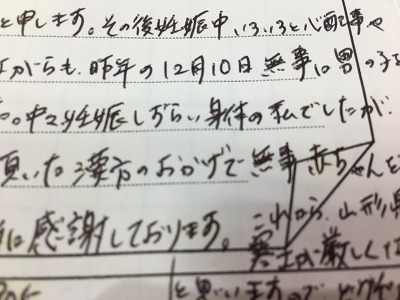 と申します。その後妊娠中いろいろと心配事や
ながらも、昨年の12月10日無事に男の子を
中々妊娠しずらい身体の私でしたが
頂いた漢方のおかげで無事赤ちゃんを
に感謝しております。これから、山形県
寒さが厳しくな
と思いますので